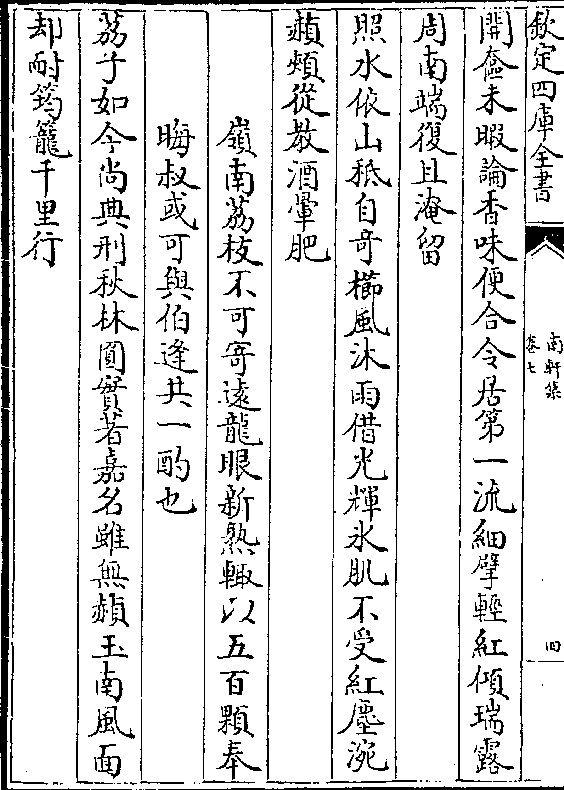 欽定四庫全書
南軒集
卷七
四
開奩未暇論香味便合令居第一流細擘輕紅傾瑞露
周南端復且淹留
照水依山秪自奇櫛風沐雨借光輝氷肌不受紅塵涴
赪頰從教酒暈肥
嶺南荔枝不可寄遠龍眼新熟輒以五百顆奉
晦叔或可與伯逢共一酌也
荔子如今尚典刑秋林圓實著嘉名雖無赪玉南風面
却耐筠籠千里行